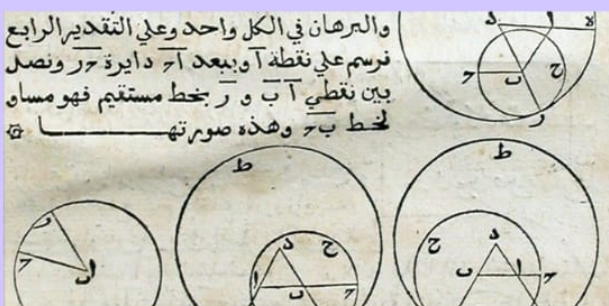 والبرهان في الكل واحد وعلي التقدير الرابع
نرسم علي نقطة آ وببعد آح دايرة حر ونصل
بين نقطي آ ب و ر بخط مستقيم فهو مساو
لخط بح وهذه صورتها
ه د ا
ح ب ج
ر
ط
ط
ر
ح
ا ب
د ج
ا ب ح
ج د
ب ا ح